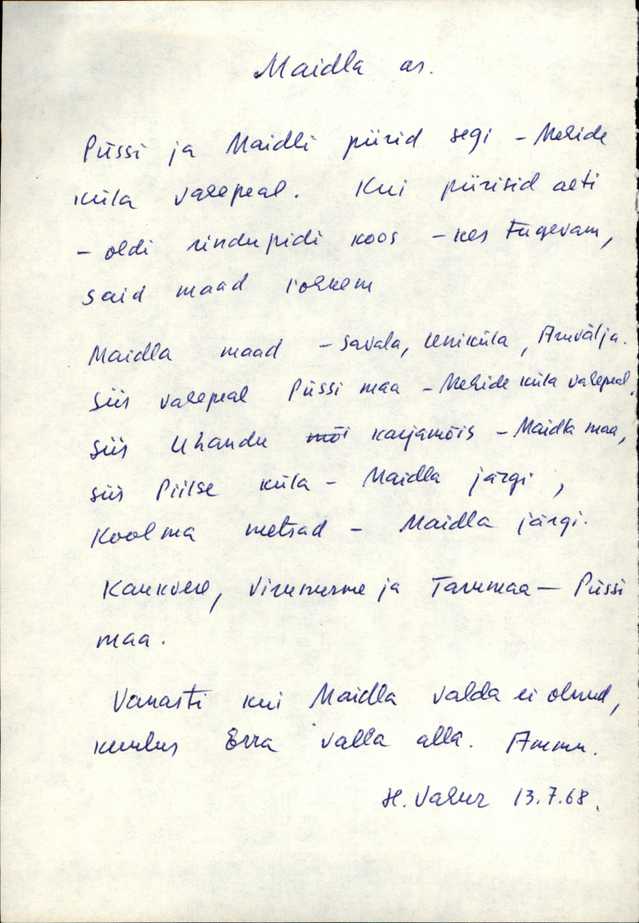 Maidla as.
Püssi ja Maidli piirid segi - Mehide
küla vahepeal. Kui piirisid aeti
- oldi rindupidi koos - kes tugevam,
said maad rohkem
Maidla maad - Savala, Uniküla, Aruvälja.
Siis vahepeal Püssi maa - Mehide küla vahepeal.
Siis Uhandu mõi karjamõis - Maidla maa,
siis Piilse küla - Maidla järgi,
Koolma metsad - Maidla järgi.
Kaukvere, Virunurme ja Tarumaa - Püssi
maa.
Vanasti kui Maidla valda ei olnud,
kuulus Erra valla alla. Ammu.
13.7.68.